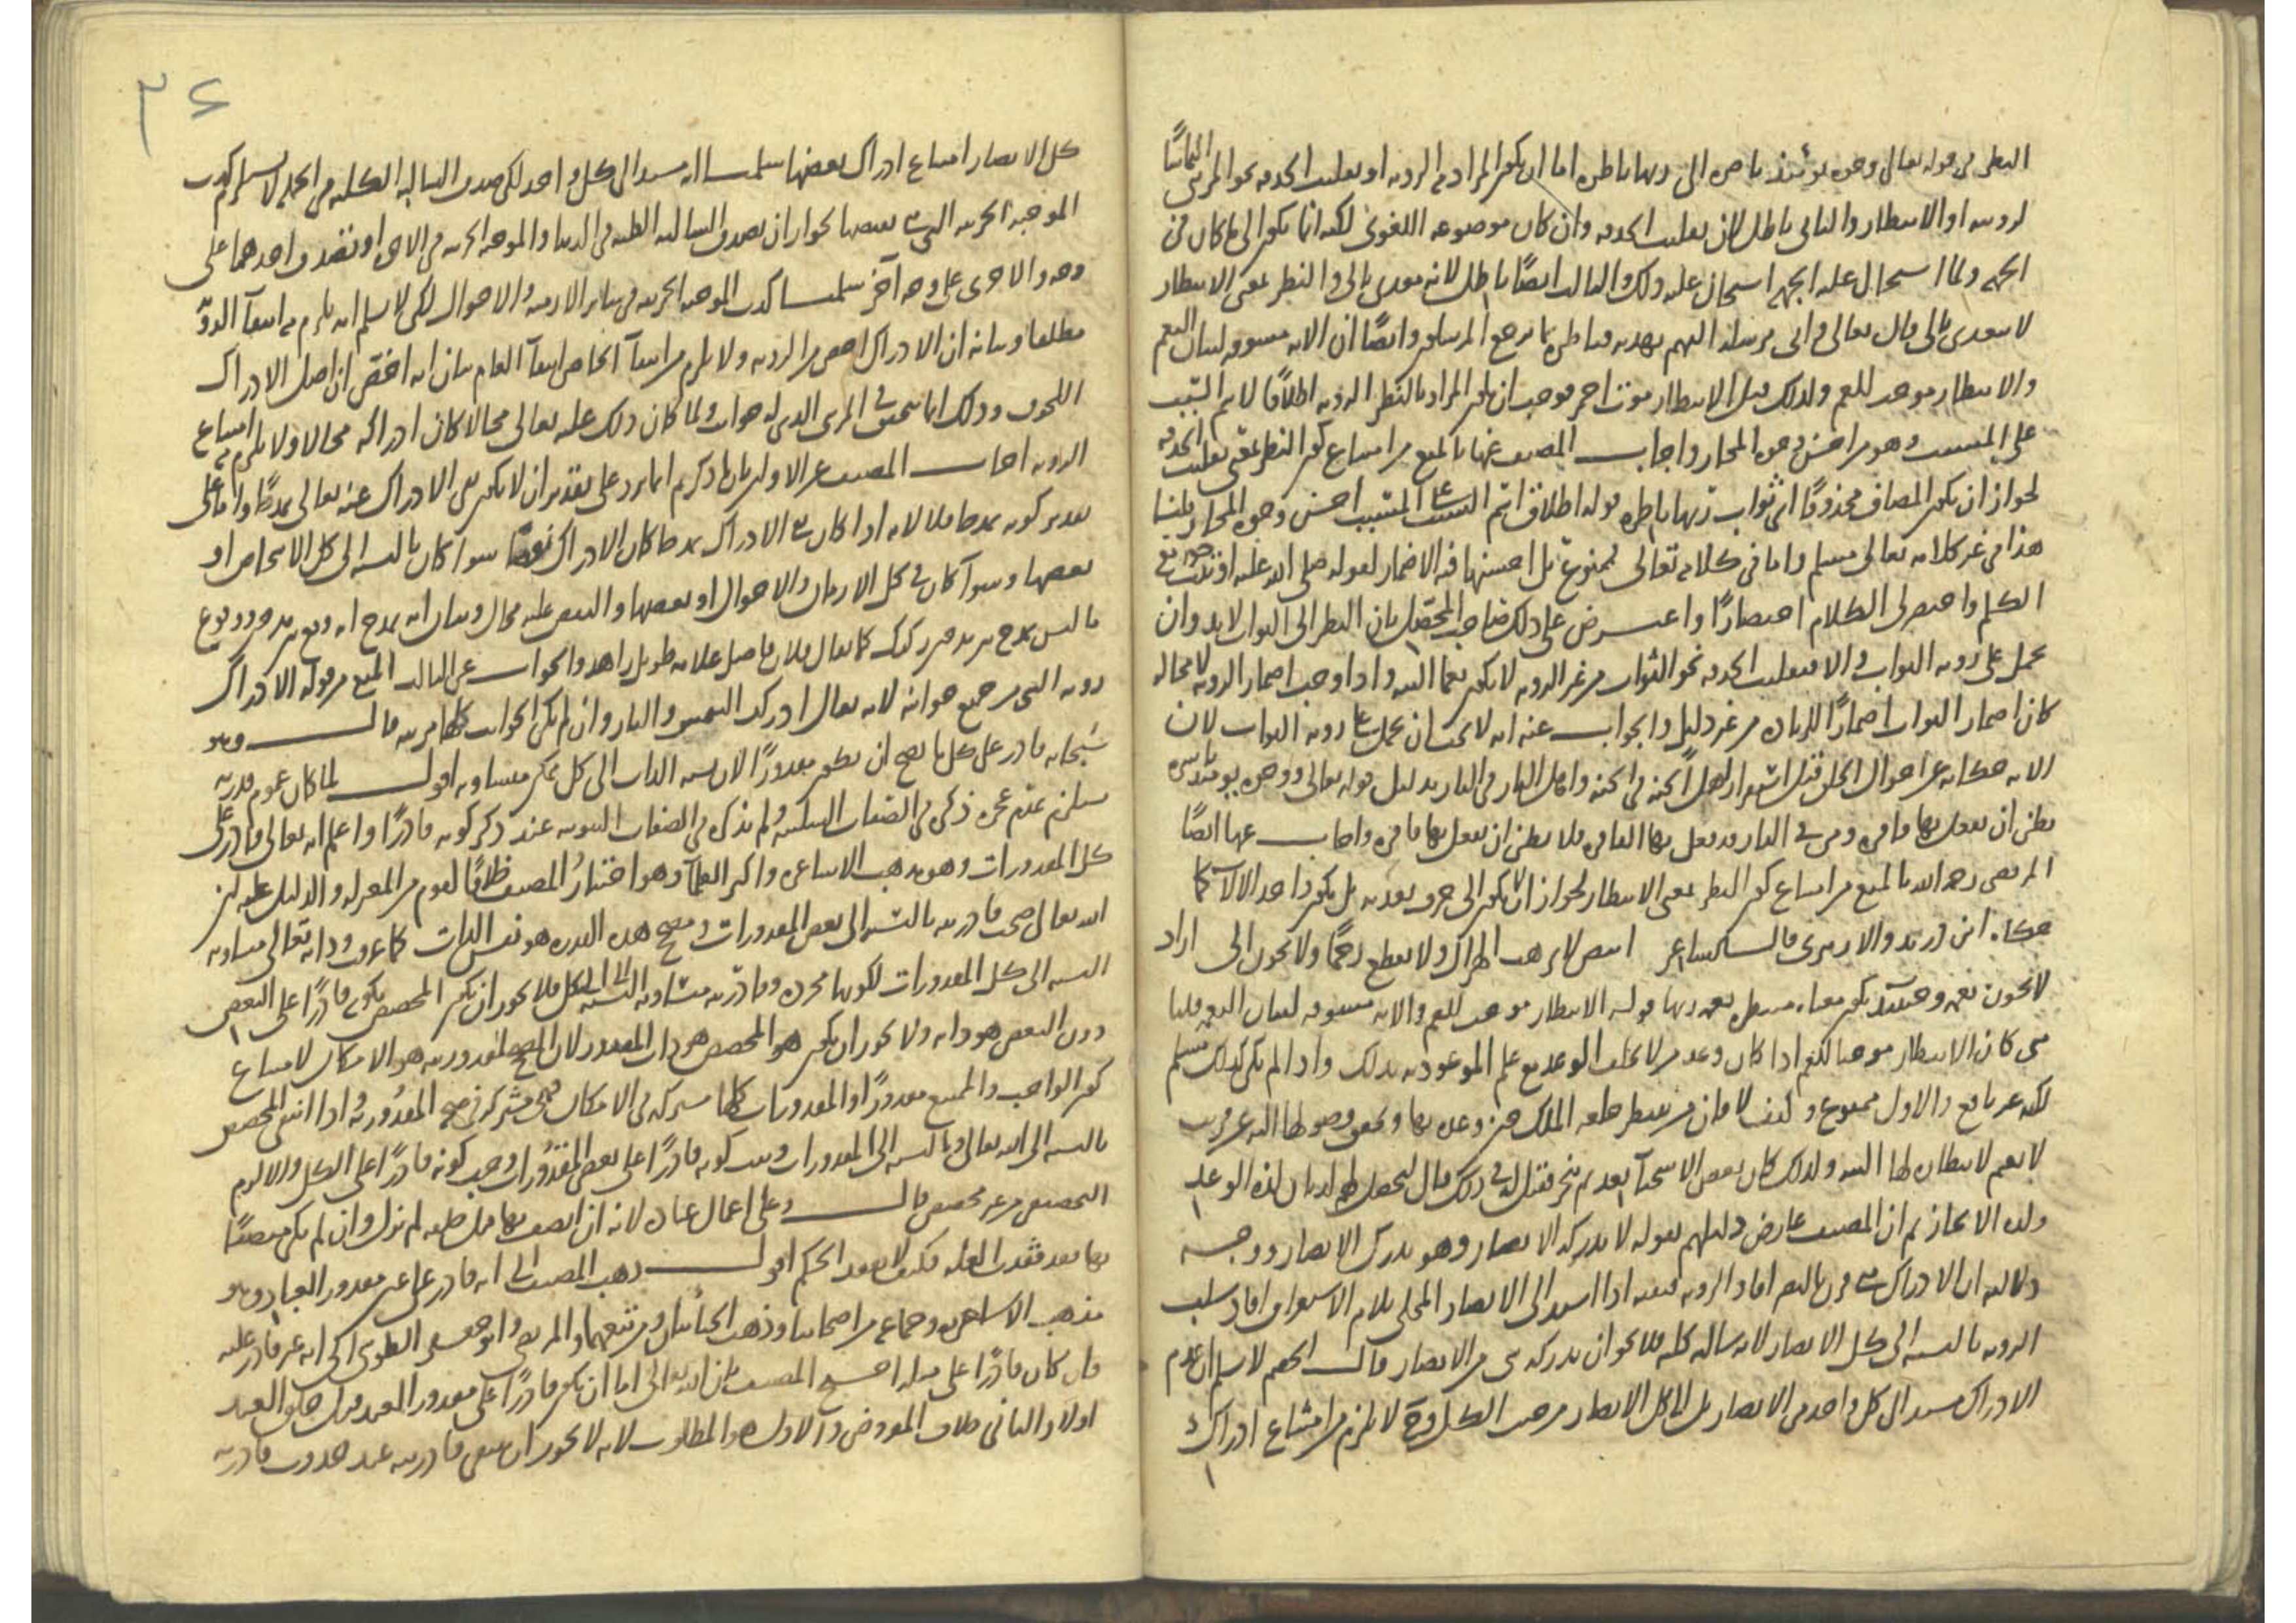 النظر في قوله تعالى وجوه يومئذ ناضرة الى ربها ناظرة اما ان يكون المراد به الرؤية او تقليب الحدقة نحو المرئي التماسًا
لرؤيته او الانتظار والثاني باطل لان تقليب الحدقة وان كان موضوعه اللغوي لكنه انما يكون الى ما كان في
الجهة ولما استحال عليه الجهة استحال عليه ذلك والثالث ايضًا باطل لانه معدى بالى والنظر بمعنى الانتظار
لا يتعدى بالى قال تعالى واني مرسلة اليهم بهدية فناظرة بم يرجع المرسلون وايضًا ان الاية مسوقة لبيان النعم
والانتظار موجب للغم ولذلك قيل الانتظار موت احمر فوجب ان يكون المراد بالنظر الرؤية اطلاقًا لاسم السبب
على المسبب وهو من احسن وجوه المجاز واجاب المصنف عنها بالمنع من امتناع كون النظر بمعنى تقليب الحدقة
لجواز ان يكون المضاف محذوفًا اي ثواب ربها ناظرة قوله اطلاق اسم السبب على المسبب احسن وجوه المجاز قلنا
هذا في غير كلامه تعالى مسلم واما في كلامه تعالى فممنوع بل احسنها فيه الاضمار لقوله صلى الله عليه اوتيت جوامع
الكلم واختصر لي الكلام اختصارًا واعترض على ذلك صاحب المحصل بان النظر الى الثواب لا بد وان
يحمل على رؤية الثواب والا فتقليب الحدقة نحو الثواب من غير الرؤية لا يكون نعما البتة واذا وجب اضمار الرؤية لا محالة
كان اضمار الثواب اضمارًا للزيادة من غير دليل والجواب عنه انه لا يجب ان يحمل على رؤية الثواب لان
الاية حكاية عن احوال الخلق قبل استقرار اهل الجنة في الجنة واهل النار في النار بدليل قوله تعالى ووجوه يومئذ باسرة
تظن ان يفعل بها فاقرة ومن في النار قد فعل بها الفاقرة فلا يظن ان يفعل بها فاقرة واجاب عنها ايضًا
المرتضى رحمه الله بالمنع من امتناع كون النظر بمعنى الانتظار لجواز ان لا يكون الى حرف تعدية بل يكون واحد الالاء كما
حكاه ابن دريد والازهري قال الشاعر ابيض لا يرهب الهزال ولا يقطع رحمًا ولا يخون الى اراد
لا يخون نعمة وحينئذ يكون معناه منتظرة نعمة ربها قوله الانتظار موجب للغم والاية مسوقة لبيان النعم قلنا
متى كان الانتظار موجبا للغم اذا كان وعد من لا يخلف الوعد مع علم الموعود به بذلك واذا لم يكن كذلك مسلم
لكنه غير نافع والاول ممنوع وكيف لا وان من ينتظر خلعة الملك حين وعده بها وتحقق وصولها اليه عن قريب
لا يغم لانتظاره لها البتة ولذلك كان بعض الاسخياء يعد ثم ينجز فقيل له في ذلك قال ليحصل لهم لذتان لذة الوعد
ولذة الانجاز ثم ان المصنف عارض دليلهم بقوله لا تدركه الابصار وهو يدرك الابصار ووجه
دلالته ان الادراك متى قرن بالبصر افاد الرؤية فنفيه اذا اسند الى الابصار المحلى بلام الاستغراق افاد سلب
الرؤية بالنسبة الى كل الابصار لانه سالبة كلية فلا يجوز ان يدركه شي من الابصار قال الخصم لا نسلم ان عدم
الادراك مسند الى كل واحد من الابصار بل الى كل الابصار من حيث الكل وح لا يلزم من امتناع ادراك
٣٤
كل الابصار امتناع ادراك بعضها سلمنا انه مسند الى كل واحد لكن صدق السالبة الكلية في الجملة لا يستلزم كذب
الموجبة الجزئية التي هي نقيضها لجواز ان يصدق السالبة الكلية في الدنيا والموجبة الجزئية في الاخرى او تصدق احدهما على
وجه والاخرى على وجه آخر سلمنا كذب الموجبة الجزئية في سائر الازمنة والاحوال لكن لا نسلم انه يلزم منه انتفاء الرؤية
مطلقا وبيانه ان الادراك اخص من الرؤية ولا يلزم من انتفاء الخاص انتفاء العام بيان انه اخص ان اصل الادراك
اللحوق وذلك انما يتحقق في المرئي الذي له جوانب ولما كان ذلك عليه تعالى محالا كان ادراكه محالا ولا يلزم منه امتناع
الرؤية اجاب المصنف عن الاول بان ما ذكرتم انما يرد على تقدير ان لا يكون نفي الادراك عنه تعالى مدحًا واما على
تقدير كونه مدحا فلا لانه اذا كان نفي الادراك مدحا كان الادراك نقصًا سواء كان بالنسبة الى كل الاشخاص او
بعضها وسواء كان في كل الازمان والاحوال او بعضها والنقص عليه محال وبيان انه مدح انه وقع بين مدحين ووقوع
ما ليس مدح بين مدحين ركيك كما يقال فلان فاضل علامة طويل زاهد والجواب عن الثالث المنع من قوله الادراك
رؤية الشي من جميع جوانبه لانه يقال ادركت الشمس والنار وان لم يكن الجوانب كلها مرئية قال وهو
سبحانه قادر على كل ما يصح ان يكون مقدورًا لان نسبة الذات الى كل ممكن متساوية اقول لما كان عموم قدرته
مستلزم عدم عجزه ذكره في الصفات السلبية ولم يذكره في الصفات الثبوتية عند ذكر كونه قادرًا واعلم انه تعالى قادر على
كل المقدورات وهو مذهب الاشاعرة واكثر العلماء وهو اختيار المصنف خلافًا لقوم من المعتزلة والدليل عليه ان
الله تعالى صحت قادريته بالنسبة الى بعض المقدورات ومصحح هذه القدرة هو نفس الذات كما عرفت وذاته تعالى متساوية
النسبة الى كل المقدورات لكونها مجردة وقادريته متساوية النسبة الى الكل فلا يجوز ان يكون المخصص بكونه قادرًا على البعض
دون البعض هو ذاته ولا يجوز ان يكون هو المخصص هو ذات المقدور لان المصحح لمقدوريته هو الامكان لامتناع
كون الواجب والممتنع مقدورًا والمقدورات كلها مشتركة في الامكان فهي مشتركة في صحة المقدورية واذا انتفى المخصص
بالنسبة الى الله تعالى وبالنسبة الى المقدورات وثبت كونه قادرًا على بعض المقدورات وجب كونه قادرًا على الكل والا لزم
التخصيص من غير مخصص قال وعلى اعمال عباده لانه ان اتصف بها قبل خلقه لم تزل وان لم يكن متصفًا
بها بعد فقدت العلة فكيف لا يفقد الحكم اقول ذهب المصنف الى انه قادر على عين مقدور العباد وهو
مذهب الاشاعرة وجماعة من اصحابنا وذهب الجبائيان ومن تبعهما والمرتضى وابو جعفر الطوسي الى انه غير قادر عليه
وان كان قادرًا على مثله احتج المصنف بان الله تعالى اما ان يكون قادرًا على مقدور العبد قبل خلق العبد
اولا والثاني خلاف المفروض والاول هو المطلوب لانه لا يجوز ان ينتفي قادريته عند حدوث قادرية